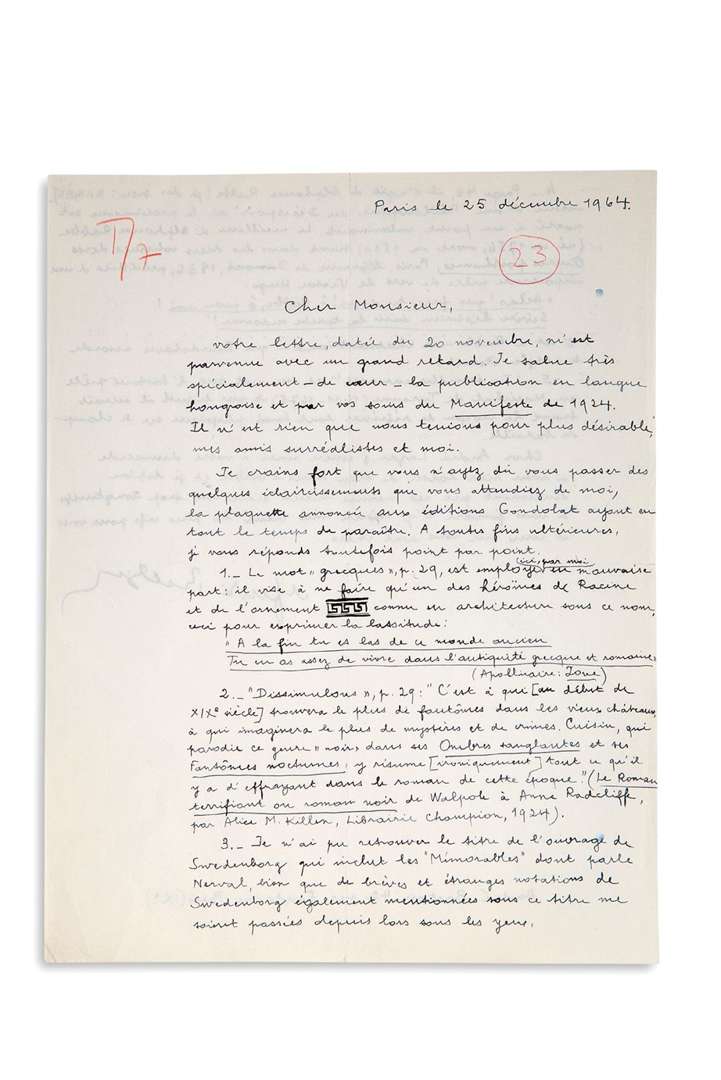 Paris le 25 décembre 1964.
7/7
23
Cher Monsieur,
votre lettre, datée du 20 novembre, m'est
parvenue avec un grand retard. Je salue très
spécialement – de cœur – la publication en langue
hongroise et par vos soins du Manifeste de 1924.
Il n'est rien que nous tenions pour plus désirable,
mes amis surréalistes et moi.
Je crains fort que vous n'ayez dû vous passer des
quelques éclaircissements que vous attendiez de moi,
la plaquette annoncée aux éditions Gondolat ayant eu
tout le temps de paraître. A toutes fins ultérieures,
je vous réponds toutefois point par point.
1._ Le mot « grecques », p. 29, est employé (ici, par moi) en mauvaise
part : il vise à ne faire qu'un des héroïnes de Racine
et de l'ornement connu en architecture sous ce nom,
ceci pour exprimer la lassitude :
« A la fin tu es las de ce monde ancien
Tu en as assez de vivre dans l'antiquité grecque et romaine »
(Apollinaire : Zone)
2._ "Dissimulons », p. 29 : "C'est à qui [au début de
XIXe siècle] trouvera le plus de fantômes dans les vieux châteaux,
à qui imaginera le plus de mystères et de crimes. Cuisin, qui
parodie ce genre « noir » dans ses Ombres sanglantes et ses
Fantômes nocturnes, y résume [ironiquement] tout ce qu'il
y a d'effrayant dans le roman de cette époque." (Le Roman
terrifiant ou roman noir de Walpole à Anne Radcliffe,
par Alice M. Killen, Librairie Champion, 1924).
3._ Je n'ai pu retrouver le titre de l'ouvrage de
Swedenborg qui inclut les "Mémorables" dont parle
Nerval, bien que de brèves et étranges notations de
Swedenborg également mentionnées sous ce titre me
soient passées depuis lors sous les yeux.